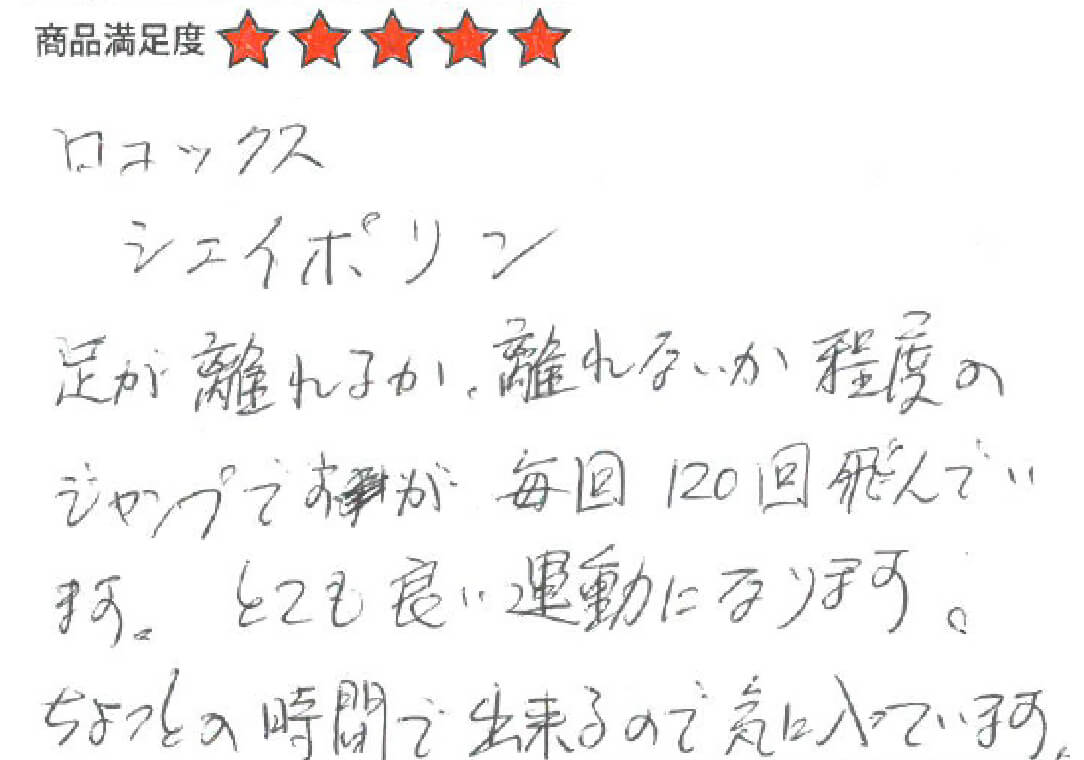 商品満足度 ★★★★★
ロコックス
シェイポリン
足が離れるか、離れないか程度の
ジャンプですが 毎回 120回飛んでい
ます。 とても良い運動になります。
ちょっとの時間で出来るので気に入っています。